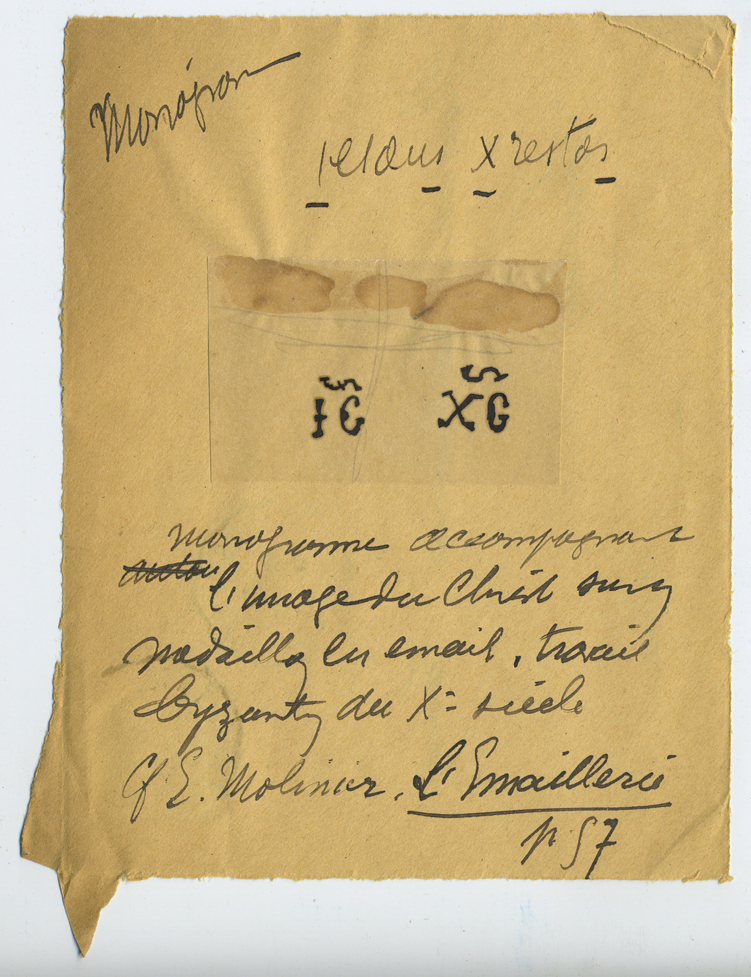 Monogram
Iesous Xrestos
IC XC
monogramme accompagnant
l'image du Christ sur un
médaillon en email, travail
byzantin du Xe siècle
Cf E. Molinier, L'Emaillerie
p. 57